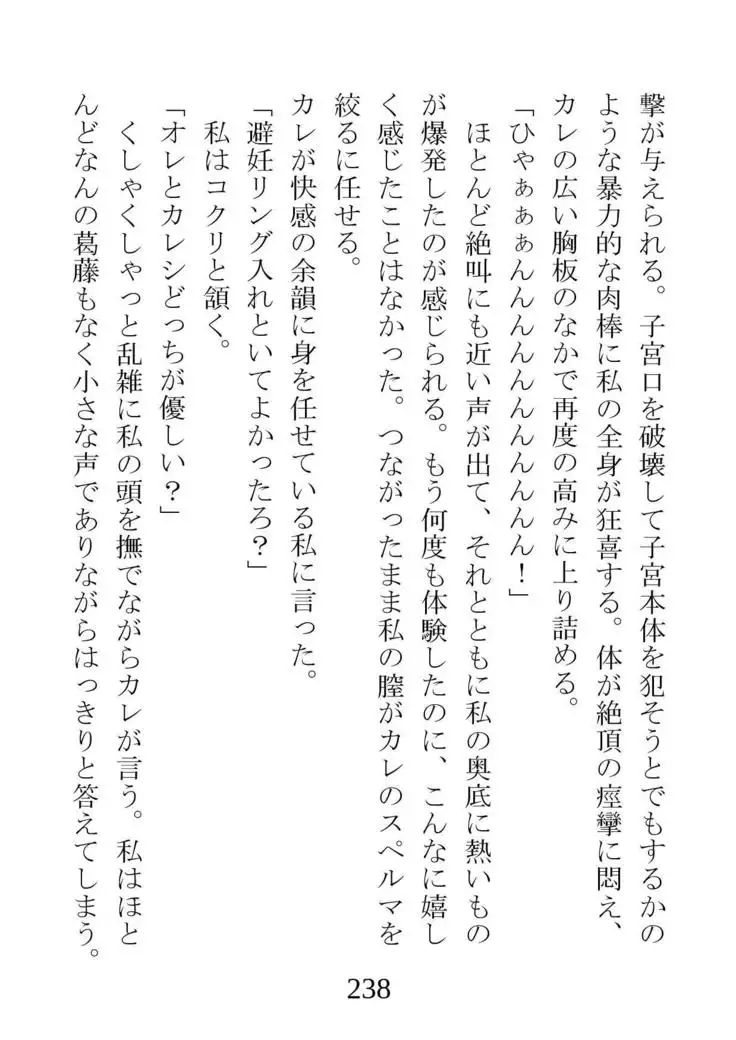 撃が与えられる。子宮口を破壊して子宮本体を犯そうとでもするかの
ような暴力的な肉棒に私の全身が狂喜する。体が絶頂の痙攣に悶え、
カレの広い胸板のなかで再度の高みに上り詰める。
「ひゃぁぁぁんんんんんんんんんん！」
ほとんど絶叫にも近い声が出て、それとともに私の奥底に熱いもの
が爆発したのが感じられる。もう何度も体験したのに、こんなに嬉し
く感じたことはなかった。つながったまま私の膣がカレのスペルマを
絞るに任せる。
カレが快感の余韻に身を任せている私に言った。
「避妊リング入れといてよかったろ？」
私はコクリと頷く。
「オレとカレシどっちが優しい？」
くしゃくしゃっと乱雑に私の頭を撫でながらカレが言う。私はほと
んどなんの葛藤もなく小さな声でありながらはっきりと答えてしまう。
238